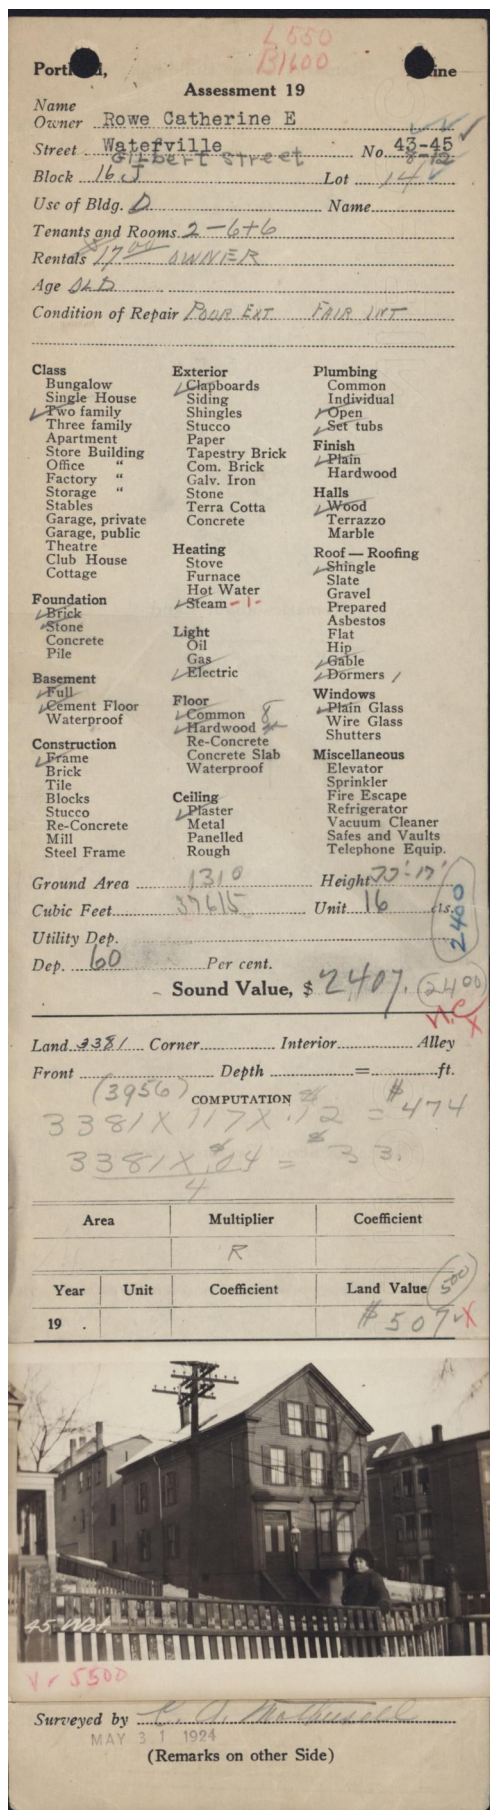 L 550
B1600
Portland, Maine
Assessment 19
Name
Owner Rowe Catherine E
Street Waterville No. 43-45
Gilbert Street 8-12
Block 16 J Lot 14
Use of Bldg. D Name
Tenants and Rooms 2-6+6
Rentals $17.00 OWNER
Age OLD
Condition of Repair POOR EXT FAIR INT
Class
Bungalow
Single House
Two family
Three family
Apartment
Store Building
Office "
Factory "
Storage "
Stables
Garage, private
Garage, public
Theatre
Club House
Cottage
Foundation
Brick
Stone
Concrete
Pile
Basement
Full
Cement Floor
Waterproof
Construction
Frame
Brick
Tile
Blocks
Stucco
Re-Concrete
Mill
Steel Frame
Exterior
Clapboards
Siding
Shingles
Stucco
Paper
Tapestry Brick
Com. Brick
Galv. Iron
Stone
Terra Cotta
Concrete
Heating
Stove
Furnace
Hot Water
Steam -1-
Light
Oil
Gas
Electric
Floor
Common 8
Hardwood
Re-Concrete
Concrete Slab
Waterproof
Ceiling
Plaster
Metal
Panelled
Rough
Plumbing
Common
Individual
Open
Set tubs
Finish
Plain
Hardwood
Halls
Wood
Terrazzo
Marble
Roof — Roofing
Shingle
Slate
Gravel
Prepared
Asbestos
Flat
Hip
Gable
Dormers /
Windows
Plain Glass
Wire Glass
Shutters
Miscellaneous
Elevator
Sprinkler
Fire Escape
Refrigerator
Vacuum Cleaner
Safes and Vaults
Telephone Equip.
Ground Area 1310 Height
Cubic Feet 37615 Unit 16 cts.
2400
Utility Dep.
Dep. 60 Per cent.
Sound Value, $ 2407. (2400)
N.C X
Land 3381 Corner Interior Alley
Front Depth = ft.
(3956) COMPUTATION
3381 X 117 X .12 = $474
3381 X .04 = $33.
4
Area Multiplier Coefficient
R
Year Unit Coefficient Land Value (500)
19 . $507 X
45 Wat.
Vr 5500
Surveyed by
MAY 31 1924
(Remarks on other Side)